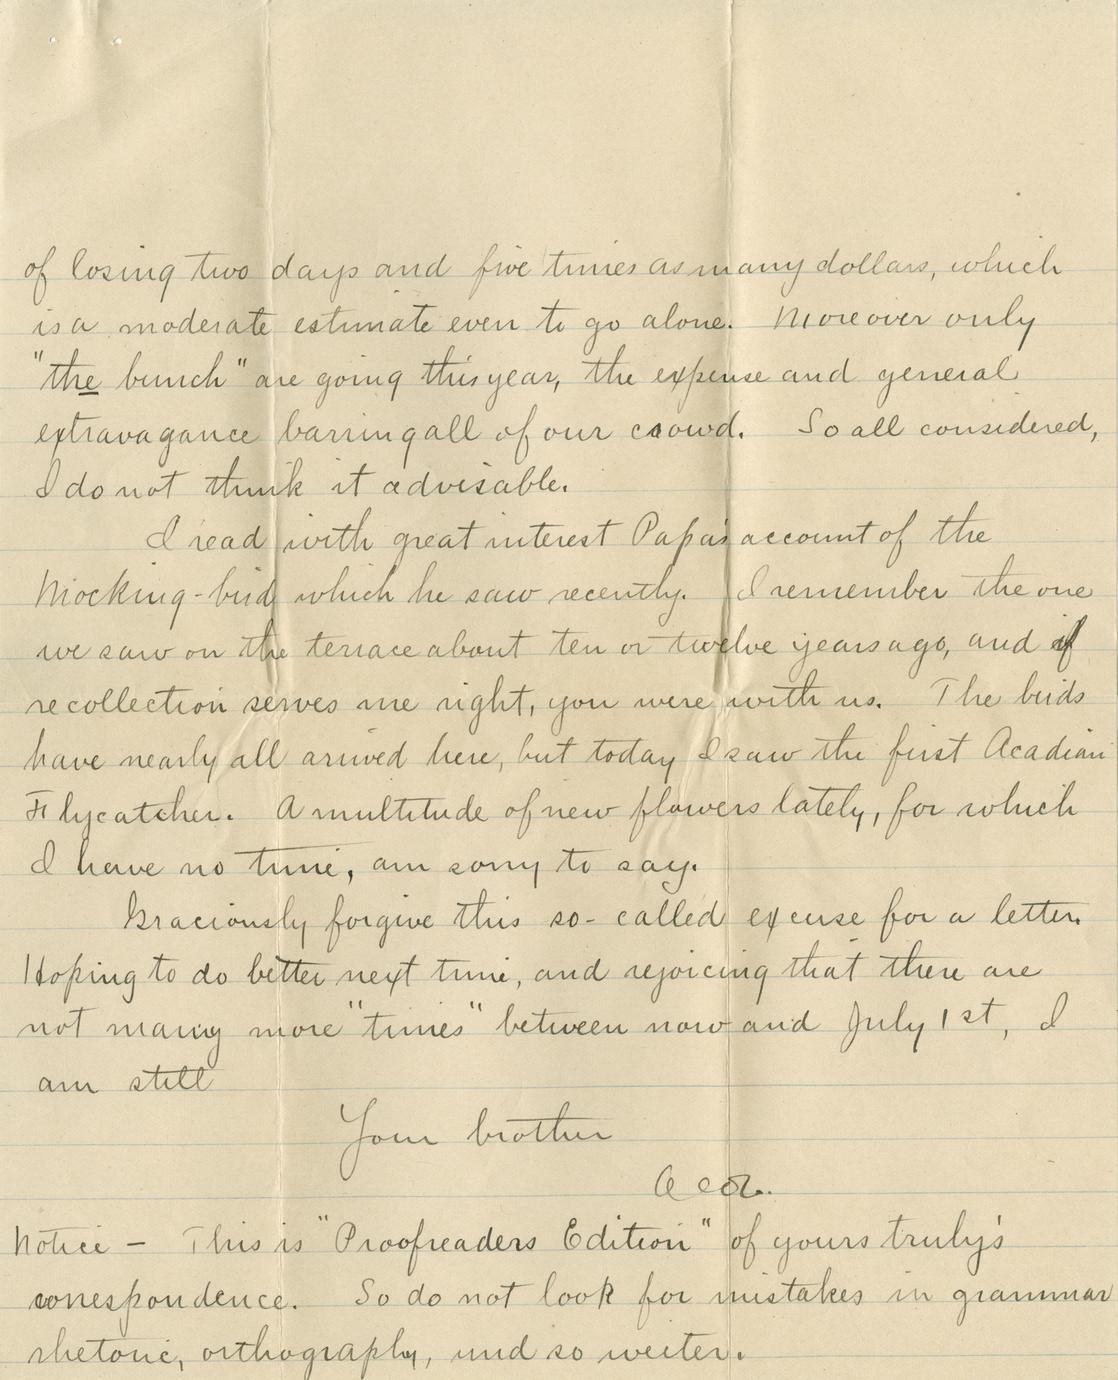 of losing two days and five times as many dollars, which
is a moderate estimate even to go alone. Moreover only
"the bunch" are going this year, the expense and general
extravagance barring all of our crowd. So all considered,
I do not think it advisable.
I read with great interest Papa's account of the
Mocking-bird which he saw recently. I remember the one
we saw on the terrace about ten or twelve years ago, and if
recollection serves me right, you were with us. The birds
have nearly all arrived here, but today I saw the first Acadian
Flycatcher. A multitude of new flowers lately, for which
I have no time, am sorry to say.
Graciously forgive this so-called excuse for a letter.
Hoping to do better next time, and rejoicing that there are
not many more "times" between now and July 1st, I
am still
Your brother
Notice - This is "Proofreaders Edition" of yours truly's
correspondence. So do not look for mistakes in grammar
rhetoric, orthography, und so weiter.